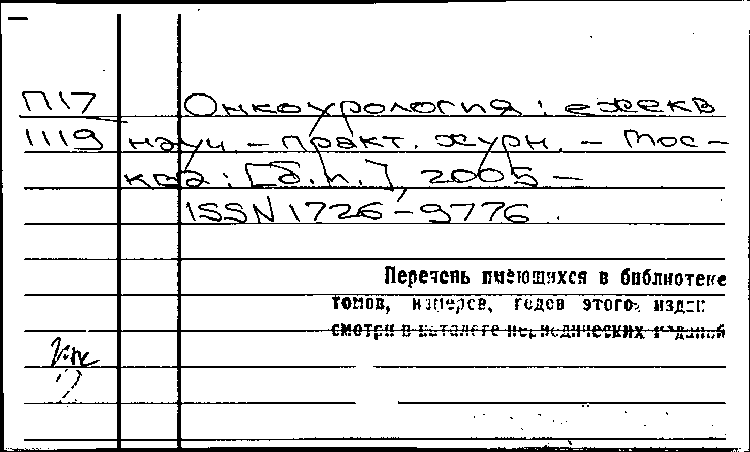 П17 Онкоурология: ежекв
1119 науч.-практ. журн. - Мос-
ква: [б.и.], 2005 -
ISSN 1726-9776.
Перечень имеющихся в библиотеке
томов, номеров, годов этого издан
смотри в каталоге периодических изданий